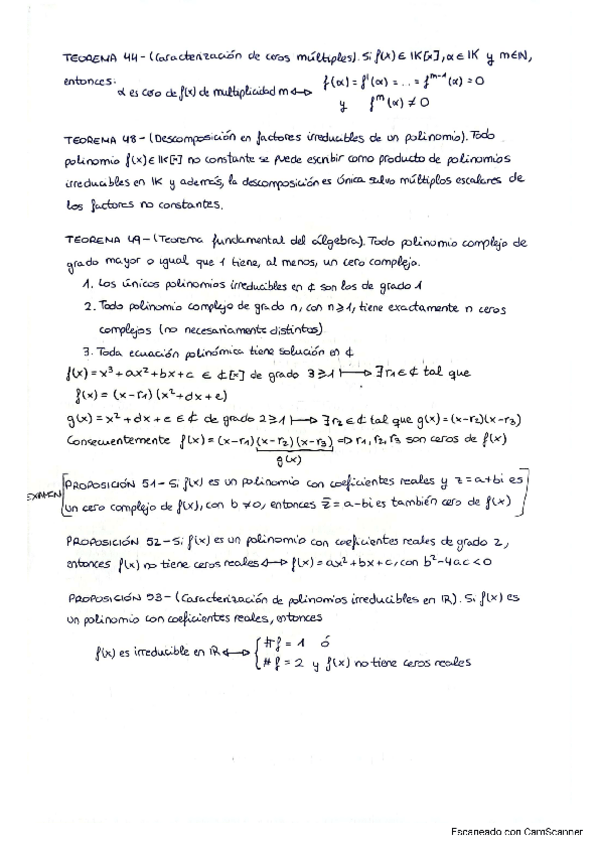 TEOREMA 44-(Caracterización de ceros múltiples). Si f(x)∈ IK[x], α∈IK y m∈N,
entonces:
α es cero de f(x) de multiplicidad m ↔ f(α)=f'(α)=...=f^{m-1}(α)=0
y f^m(α)≠0
TEOREMA 48-(Descomposición en factores irreducibles de un polinomio). Todo
polinomio f(x)∈IK[x] no constante se puede escribir como producto de polinomios
irreducibles en IK y además, la descomposición es única salvo múltiplos escalares de
los factores no constantes.
TEOREMA 49-(Teorema fundamental del álgebra). Todo polinomio complejo de
grado mayor o igual que 1 tiene, al menos, un cero complejo.
1. Los únicos polinomios irreducibles en ¢ son los de grado 1
2. Todo polinomio complejo de grado n, con n≥1, tiene exactamente n ceros
complejos (no necesariamente distintos)
3. Toda ecuación polinómica tiene solución en ¢
f(x)=x³+ax²+bx+c ∈ ¢[x] de grado 3≥1 ↦ ∃r₁∈¢ tal que
f(x)=(x-r₁)(x²+dx+e)
g(x)=x²+dx+e ∈¢ de grado 2≥1 ↦ ∃r₂∈¢ tal que g(x)=(x-r₂)(x-r₃)
Consecuentemente f(x)=(x-r₁)(x-r₂)(x-r₃) ⇒ r₁,r₂,r₃ son ceros de f(x)
g(x)
EXAMEN [PROPOSICIÓN 51-Si f(x) es un polinomio con coeficientes reales y z=a+bi es
un cero complejo de f(x), con b≠0, entonces z̄=a-bi es también cero de f(x)]
PROPOSICIÓN 52-Si f(x) es un polinomio con coeficientes reales de grado 2,
entonces f(x) no tiene ceros reales ↔ f(x)=ax²+bx+c, con b²-4ac<0
PROPOSICIÓN 53-(Caracterización de polinomios irreducibles en IR). Si f(x) es
un polinomio con coeficientes reales, entonces
f(x) es irreducible en IR ↔ { #f=1 ó
#f=2 y f(x) no tiene ceros reales
Escaneado con CamScanner